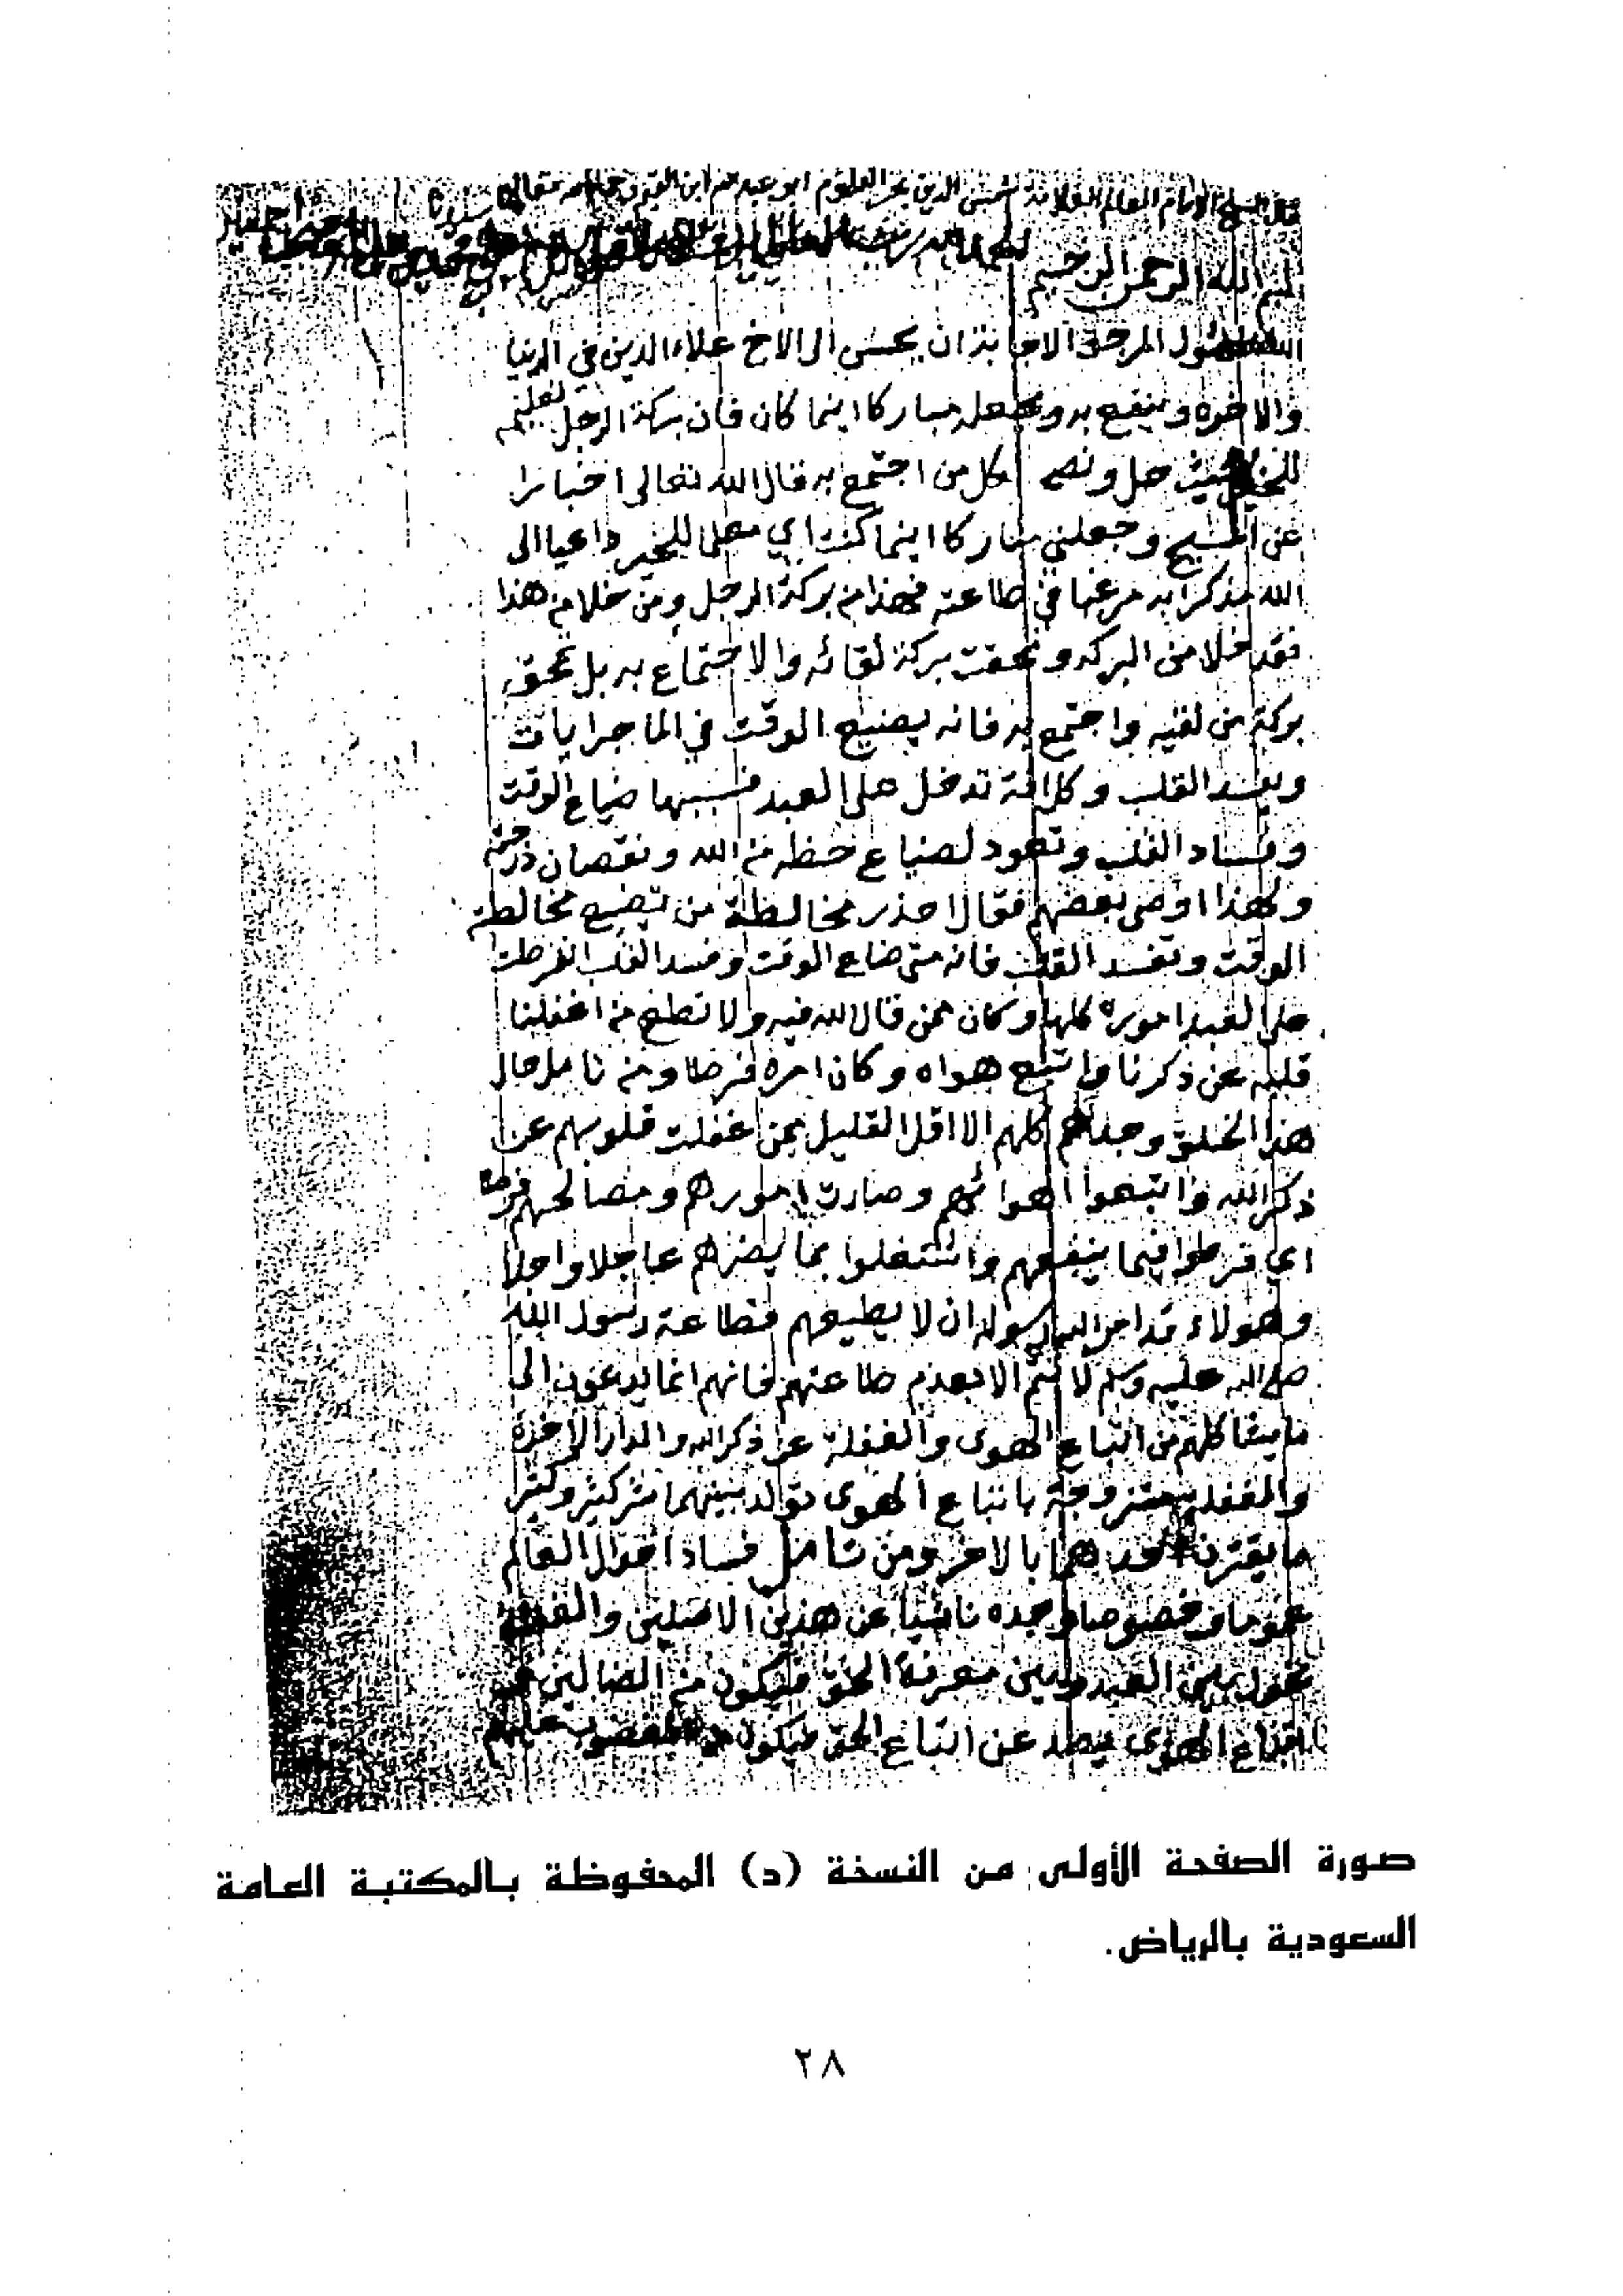 قال الشيخ الإمام العالم العلامة شمس الدين بحر العلوم ابو عبد الله ابن القيم رحمه الله تعالى
بسم الله الرحمن الرحيم
الله المسئول المرجو الاجابة ان يحسن الى الاخ علاء الدين في الدنيا
والاخرة وينفع به ويجعله مباركا اينما كان فان بركة الرجل تعليمه
للخير حيث حل ونصحه لكل من اجتمع به قال الله تعالى اخبارا
عن المسيح وجعلني مباركا اينما كنت اي معلما للخير داعيا الى
الله مذكرا به مرغبا في طاعته فهذا من بركة الرجل ومن خلا من هذا
فقد خلا من البركه ومحقت بركة لقائه والاجتماع به بل تمحق
بركة من لقيه واجتمع به فانه يضيع الوقت في الماجرايات
ويفسد القلب وكل افة تدخل على العبد فسببها ضياع الوقت
وفساد القلب وتعود لضياع حظه من الله ونقصان درجته
ولهذا اوصى بعضهم فقال احذر مخالطة من تضيع مخالطته
الوقت وتفسد القلب فانه متى ضاع الوقت وفسد القلب انفرطت
على العبد اموره كلها وكان ممن قال الله فيه ولا تطع من اغفلنا
قلبه عن ذكرنا واتبع هواه وكان امره فرطا ومن تامل حال
هذا الخلق وجدهم كلهم الا اقل القليل ممن غفلت قلوبهم عن
ذكر الله واتبعوا اهوائهم وصارت امورهم ومصالحهم فرطا
اي فرطوا فيما ينفعهم واشتغلوا بما يضرهم عاجلا واجلا
وهولاء قد امر الله رسوله ان لا يطيعهم فطاعة رسول الله
صلى الله عليه وسلم لا تتم الا بعدم طاعتهم فانهم انما يدعون الى
ما يشاكلهم من اتباع الهوى والغفلة عن ذكر الله والدار الاخرة
والغفلة متزوجة باتباع الهوى تولد بينهما شر كثير وكثيرا
ما يقترن احدهما بالاخر ومن تامل فساد احوال العالم
عموما وخصوصا وجده ناشيا عن هذين الاصلين والغفلة
تحول بين العبد وبين معرفة الحق فيكون من الضالين
اتباع الهوى يصد عن اتباع الحق فيكون من المغضوب عليهم
صورة الصفحة الأولى من النسخة (د) المحفوظة بالمكتبة العامة
السعودية بالرياض.
٢٨